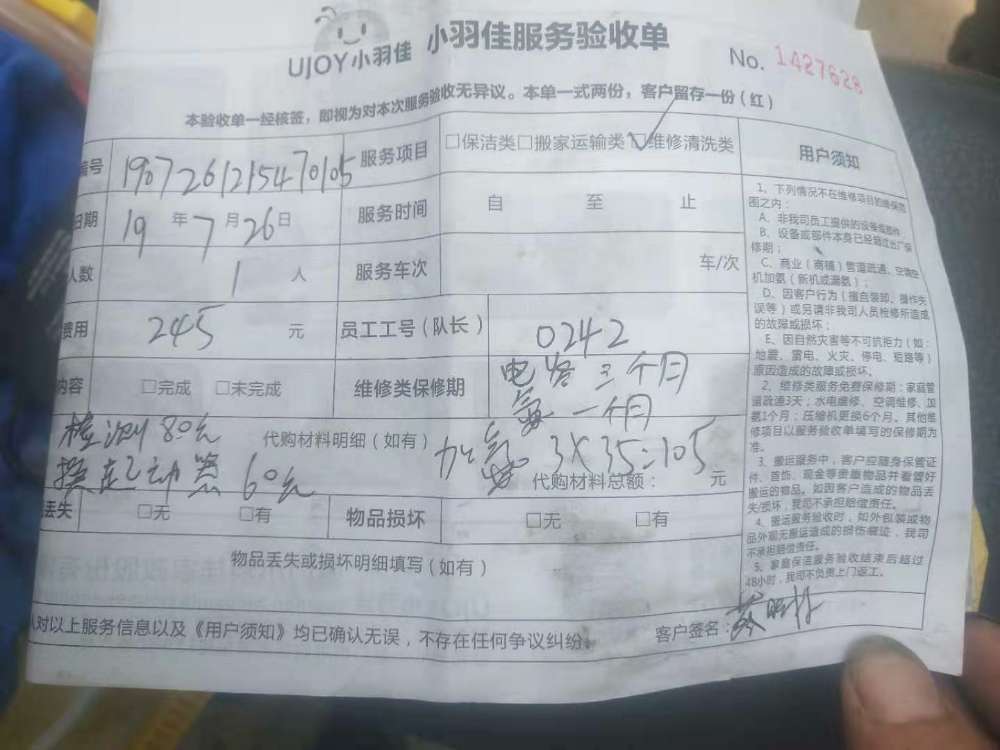 UJOY小羽佳 小羽佳服务验收单
No. 1427628
本验收单一经核签，即视为对本次服务验收无异议。本单一式两份，客户留存一份（红）
编号 1907261215470105 服务项目 □保洁类□搬家运输类□维修清洗类
日期 19 年 7 月 26 日 服务时间 自 至 止
人数 1 人 服务车次 车/次
费用 245 元 员工工号（队长） 0242
内容 □完成 □未完成 维修类保修期 电容三个月
氟一个月
检测80元 代购材料明细（如有） 加氟 3X35=105
换起动器 60元 代购材料总额： 元
丢失 □无 □有 物品损坏 □无 □有
物品丢失或损坏明细填写（如有）
人对以上服务信息以及《用户须知》均已确认无误，不存在任何争议纠纷。 客户签名：
用户须知
1、下列情况不在维修项目的维保范
围之内：
A、非我司员工提供的设备或部件
B、设备或部件本身已经超过出厂保
修期；
C、商业（商铺）管道疏通、空调空
机加氨（新机或漏氨）；
D、因客户行为（擅自装卸、操作失
误等）或另请非我司人员检修所造成
的故障或损坏；
E、因自然灾害等不可抗拒力（如：
地震、雷电、火灾、停电、短路等）
原因造成的故障或损坏。
2、维修类服务免费保修期：家庭管
道疏通3天；水电维修、空调维修、加
氨1个月；压缩机更换6个月。其他维
修项目以服务验收单填写的保修期为
准。
3、搬运服务中，客户应随身保管证
件、首饰、现金等贵重物品并看管好
搬运的物品。如因客户造成的物品丢
失/损坏，我司不承担赔偿责任。
4、搬运服务验收时，如外包装或物
品外观无搬运造成的损伤痕迹，我司
不承担赔偿责任。
5、家庭保洁服务验收结束后超过
48小时，我司不负责上门返工。